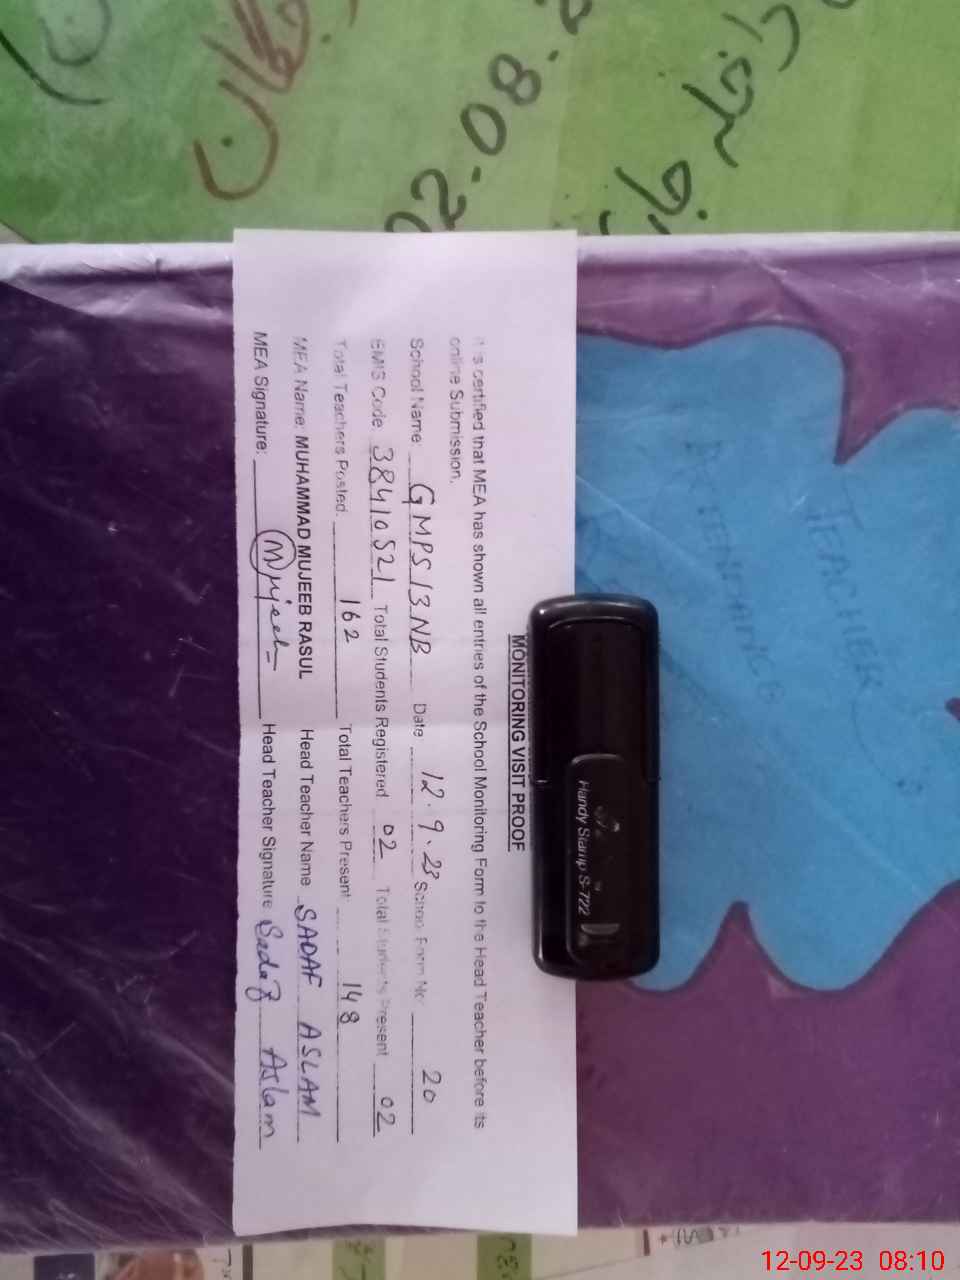 MONITORING VISIT PROOF
It is certified that MEA has shown all entries of the School Monitoring Form to the Head Teacher before its
online Submission.
School Name: GMPS 13NB Date 12.9.23 School Form No. 20
EMIS Code 38410521 Total Students Registered 02 Total Students Present 02
Total Teachers Posted: 162 Total Teachers Present 148
MEA Name: MUHAMMAD MUJEEB RASUL Head Teacher Name SADAF ASLAM
MEA Signature: Mujeeb Head Teacher Signature Sadaf Aslam
Handy Stamp S-722
TEACHER
ATTENDANCE
02-08.2
12-09-23 08:10